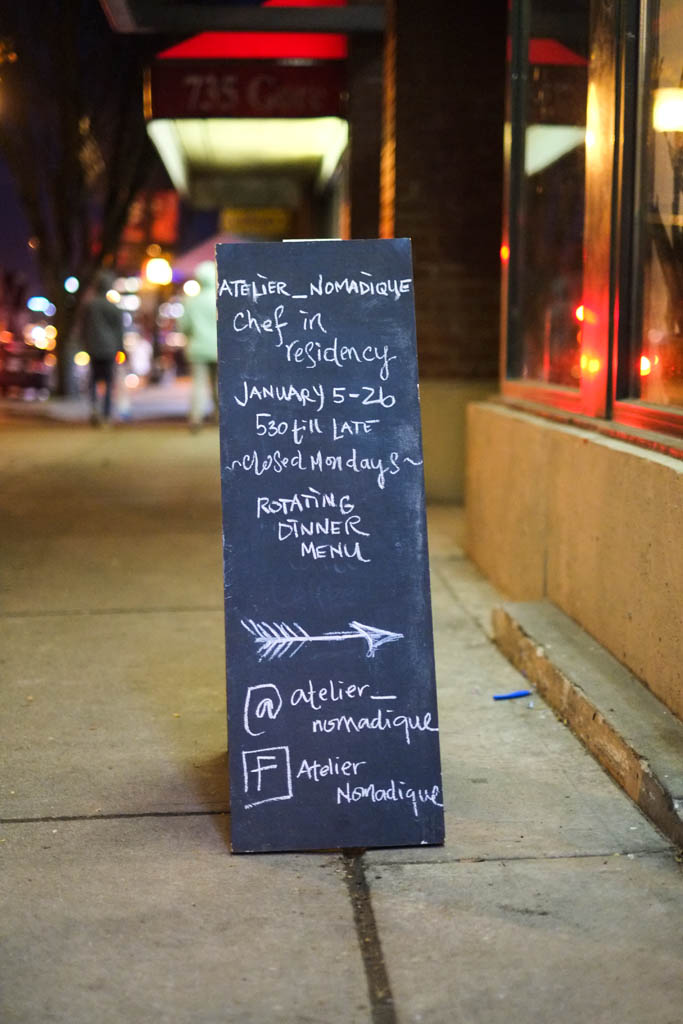 735 Gore
ATELIER_NOMADIQUE
Chef in
residency
JANUARY 5-26
530 till LATE
~closed Mondays~
ROTATING
DINNER
MENU
@ atelier_
nomadique
F Atelier
Nomadique